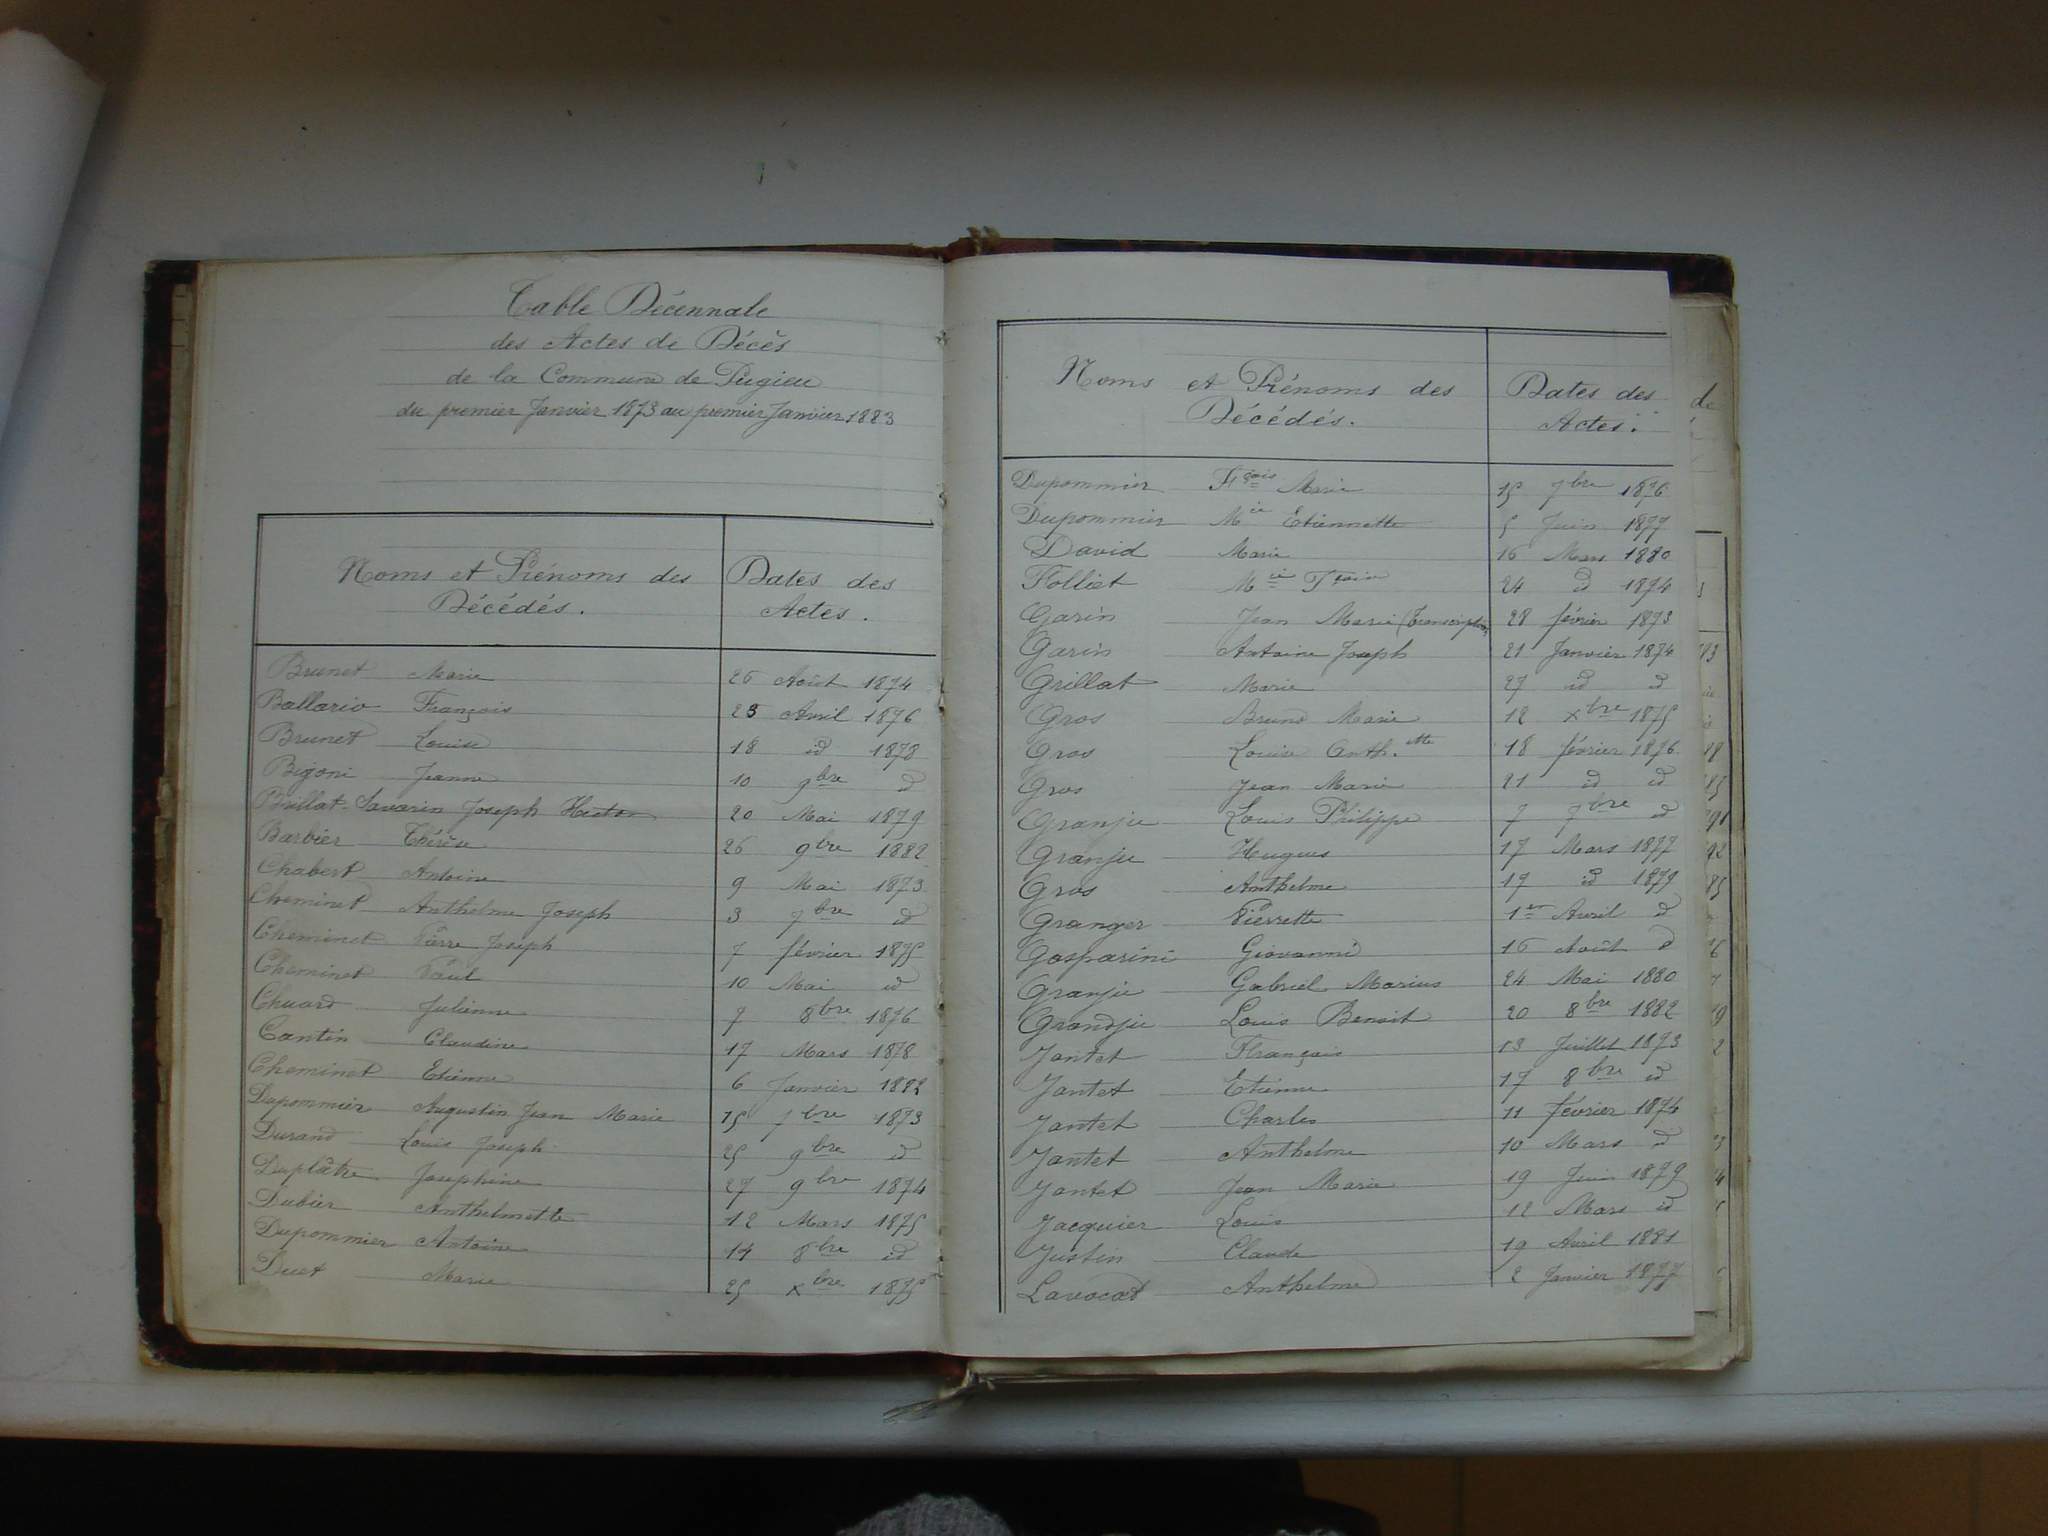 Table Décennale
des Actes de Décès
de la Commune de Pugieu
du premier Janvier 1873 au premier Janvier 1883
Noms et Prénoms des Décédés. Dates des Actes.
Brunet Marie 26 Août 1874
Ballario François 23 Avril 1876
Brunet Louise 18 id 1878
Bigoni Jeanne 10 9bre id
Brillat-Savarin Joseph Hector 20 Mai 1879
Barbier Thérèse 26 9bre 1882
Chabert Antoine 9 Mai 1873
Cheminet Anthelme Joseph 3 7bre id
Cheminet Pierre Joseph 7 février 1875
Cheminet Paul 10 Mai id
Chuard Julienne 7 8bre 1876
Cantin Claudine 17 Mars 1878
Cheminet Etienne 6 Janvier 1882
Dupommier Augustin Jean Marie 15 7bre 1873
Durand Louis Joseph 25 9bre id
Duplâtre Josephine 27 9bre 1874
Dubier Anthelmette 12 Mars 1875
Dupommier Antoine 14 8bre id
Duet Marie 25 xbre 1875
Noms et Prénoms des Décédés. Dates des Actes.
Dupommier Fçois Marie 15 7bre 1876
Dupommier Mie Etiennette 5 Juin 1877
David Marie 16 Mars 1880
Folliet Mie 24 id 1874
Garin Jean Marie (Transcription) 28 février 1873
Garin Antoine Joseph 21 Janvier 1874
Grillat Marie 27 id id
Gros Bruno Marie 12 xbre 1875
Gros Louise Anth.tte 18 février 1876
Gros Jean Marie 21 id id
Granju Louis Philippe 7 7bre id
Granju Hugues 17 Mars 1877
Gros Anthelme 19 id 1879
Granger Pierrette 1er Avril id
Gasparini Giovanni 16 Août d
Granju Gabriel Marius 24 Mai 1880
Grandju Louis Benoit 20 8bre 1882
Jantet François 13 Juillet 1873
Jantet Etienne 17 8bre id
Jantet Charles 11 février 1874
Jantet Anthelme 10 Mars d
Jantet Jean Marie 19 Juin 1879
Jacquier Louis 12 Mars id
Justin Claude 19 Avril 1881
Lavocat Anthelme 2 Janvier 1877